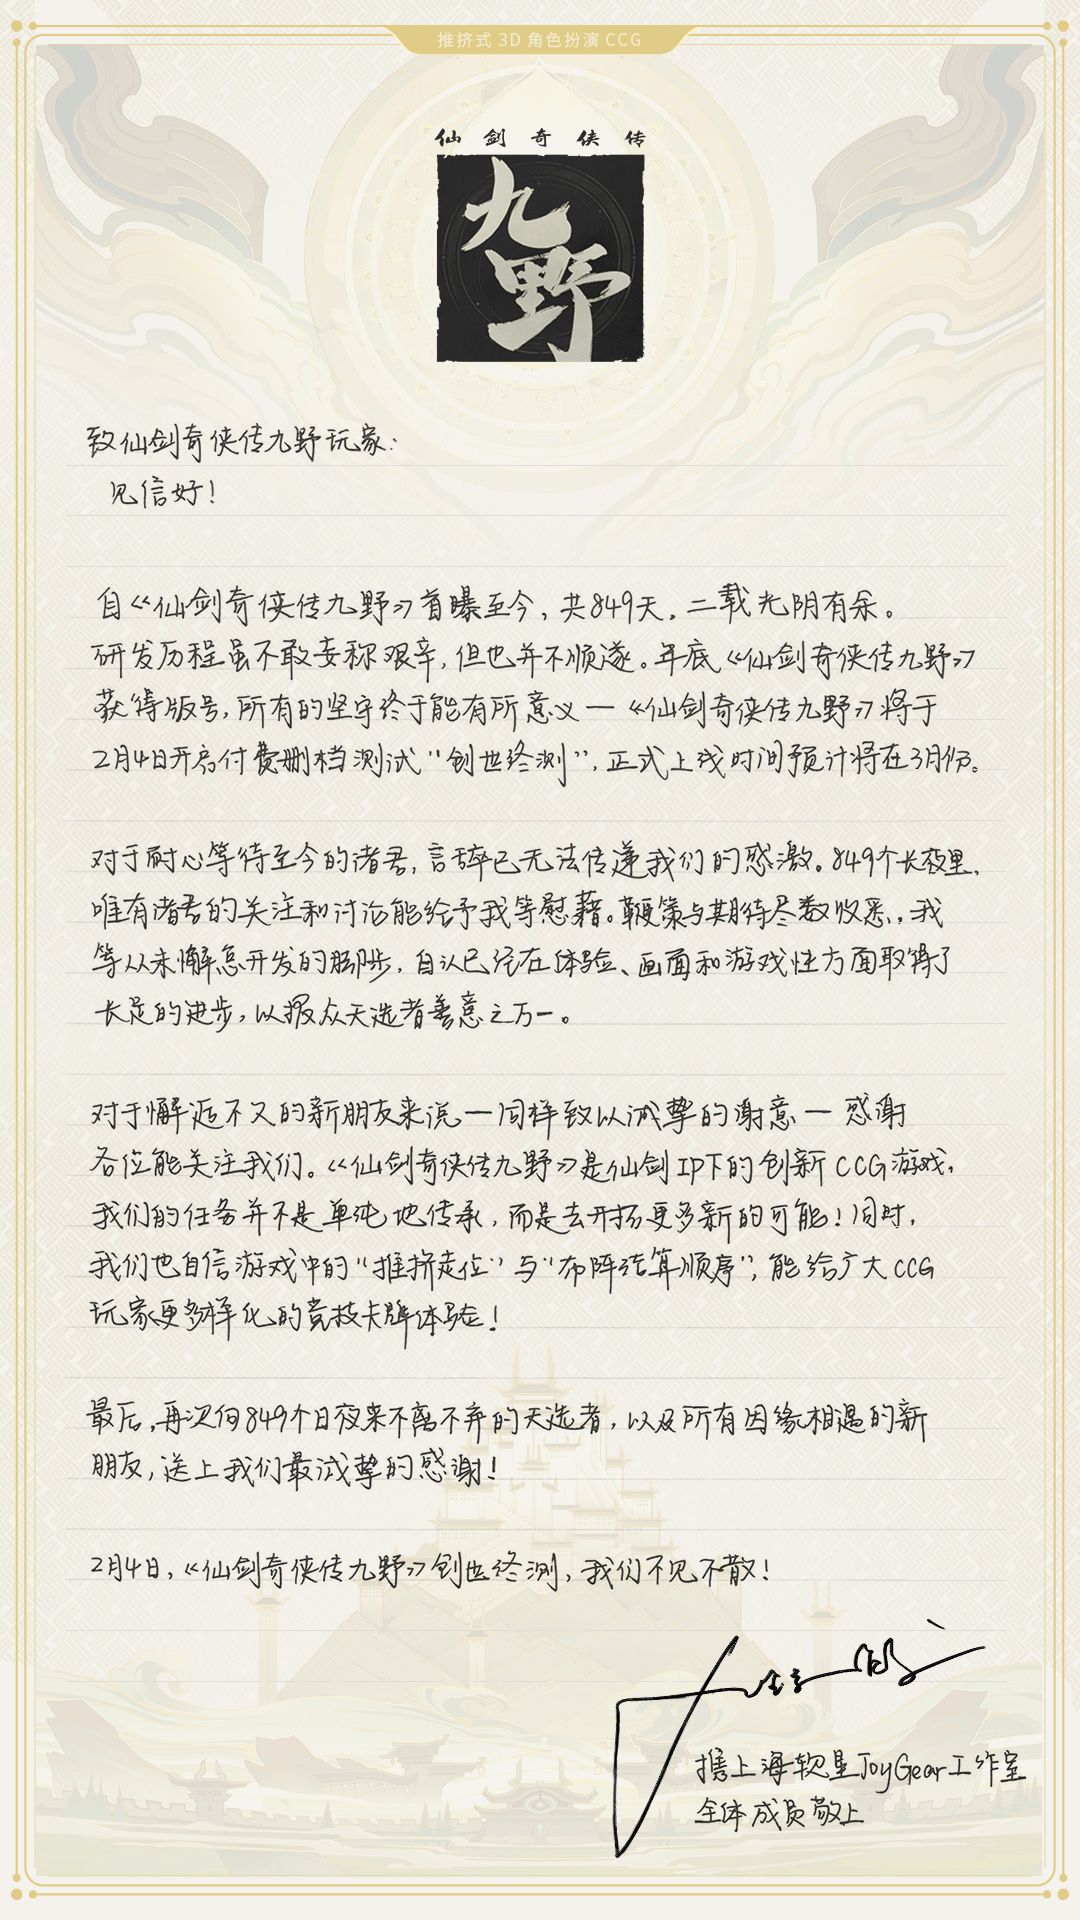 推挤式 3D 角色扮演 CCG
仙剑奇侠传
九野
致仙剑奇侠传九野玩家：
见信好！
自《仙剑奇侠传九野》首曝至今，共849天，二载光阴有余。
研发历程虽不敢妄称艰辛，但也并不顺遂。年底《仙剑奇侠传九野》
获得版号，所有的坚守终于能有所意义—《仙剑奇侠传九野》将于
2月4日开启付费删档测试“创世终测”，正式上线时间预计将在3月份。
对于耐心等待至今的诸君，言辞已无法传递我们的感激。849个长夜里，
唯有诸君的关注和讨论能给予我等慰藉。鞭策与期待尽数收悉，我
等从未懈怠开发的脚步，自认已经在体验、画面和游戏性方面取得了
长足的进步，以报众天选者善意之万一。
对于懈逅不久的新朋友来说—同样致以诚挚的谢意—感谢
各位能关注我们。《仙剑奇侠传九野》是仙剑IP下的创新CCG游戏，
我们的任务并不是单纯地传承，而是去开拓更多新的可能！同时，
我们也自信游戏中的“推挤走位”与“布阵结算顺序”，能给广大CCG
玩家更多样化的竞技卡牌体验！
最后，再次向849个日夜来不离不弃的天选者，以及所有因缘相遇的新
朋友，送上我们最诚挚的感谢！
2月4日，《仙剑奇侠传九野》创世终测，我们不见不散！
携上海软星JoyGear工作室
全体成员敬上